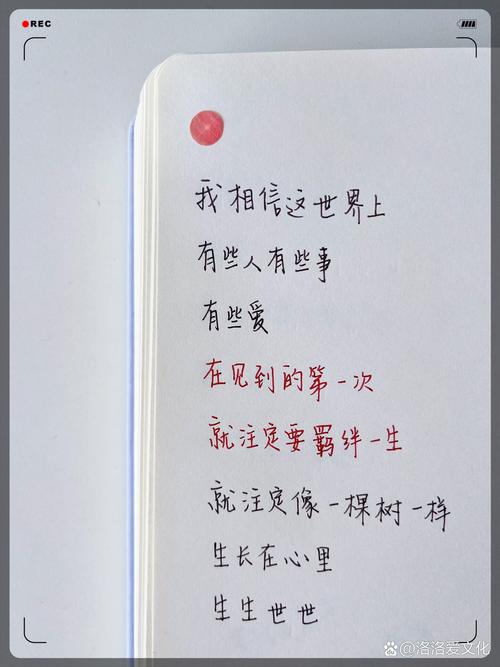 REC
我相信这世界上
有些人有些事
有些爱
在见到的第一次
就注定要羁绊一生
就注定像一棵树一样
生长在心里
生生世世
@洛洛爱文化